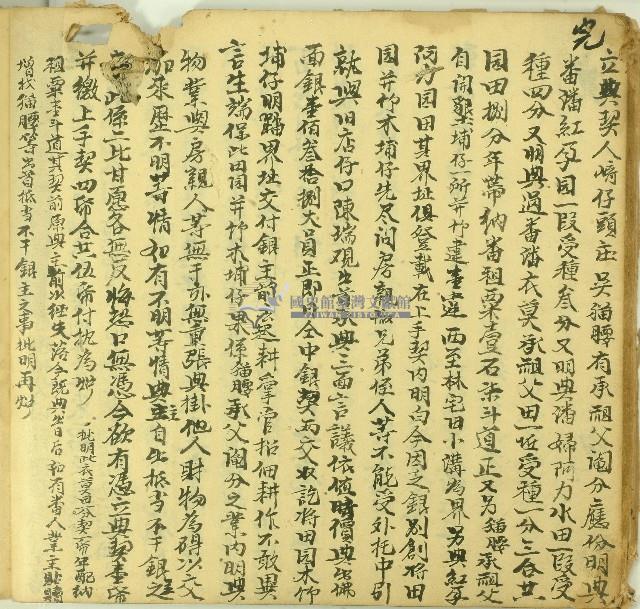 完
立典契人崎仔頭庄吳猫腰有承祖父鬮分應份明典
番潘紅孕園一段受種叁分又明典潘婦阿力水田一段受
種四分又明典過番潘衣莫承祖父田一坵受種一分三合共
園田捌分年帶納番租粟壹石柒斗道正又另猫腰承祖父
自開墾埔仔一所并竹
西至林宅田小溝為界另典紅孕
阿力園田其界址俱登載在上手契內明白今因乏銀別創將田
園并竹木埔仔先尽問房親叔兄弟侄人等不能受外托中引
就與旧店仔口陳瑞硯出首承典三面言議依值時價典出佛
面銀壹佰叁拾捌大員正即日仝中銀契兩交收訖將田園木竹
埔仔明踏界址交付銀主前去起耕掌管招佃耕作不敢異
言生端保此田園并竹木埔仔果係猫腰承父鬮分之業內明典
物業與房親人等無干亦無重張典掛他人財物為碍以及交
加來歷不明等情如有不明等情典主自出抵当不干銀主之
事此係二比甘愿各無反悔恐口無憑今欲有憑立典契壹帋
并繳上手契四帋合共伍帋付执為炤
一批明此衣莫
契帋年配納
租粟壹斗道其契前原典主前以經失落今既典出日后如有番人業主貼贖
增找猫腰等出首抵当不干銀主之事批明再炤
國史館臺灣文獻館
TAIWAN HISTORICA